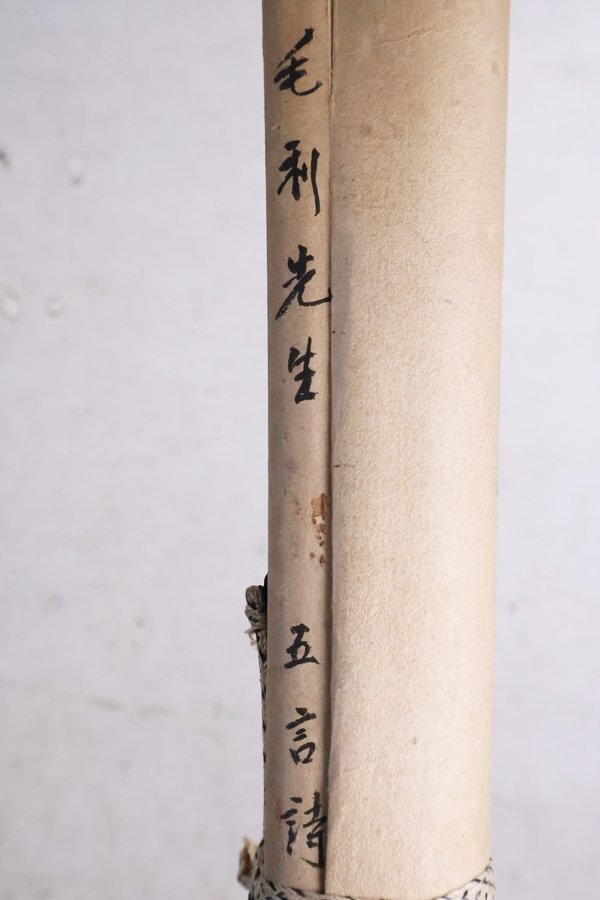 毛利先生 五言詩